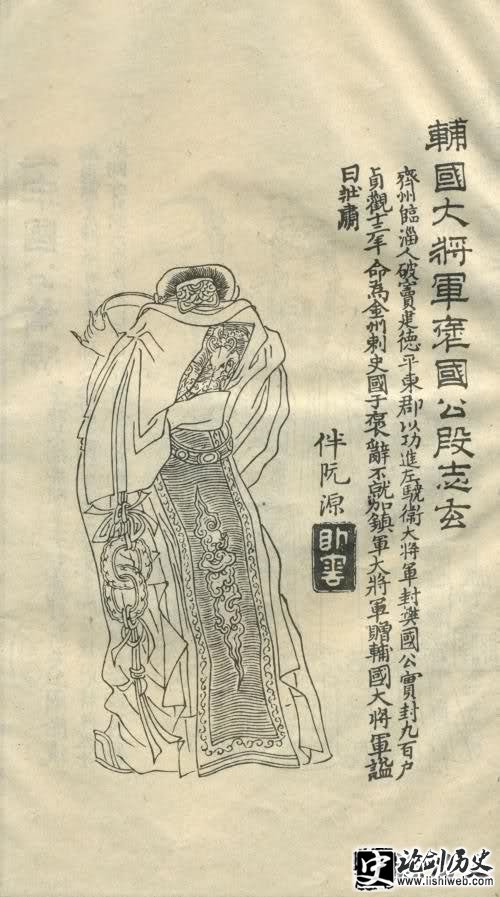 輔國大將軍褒國公段志玄
齊州臨淄人破竇建德平東郡以功進左驍衞大將軍封樊國公實封九百户
貞觀十二年命為金州刺史國于褒辭不就加鎮軍大將軍贈輔國大將軍謚
曰壯肅
伴阮源
史 论剑历史
www.lishiweb.com